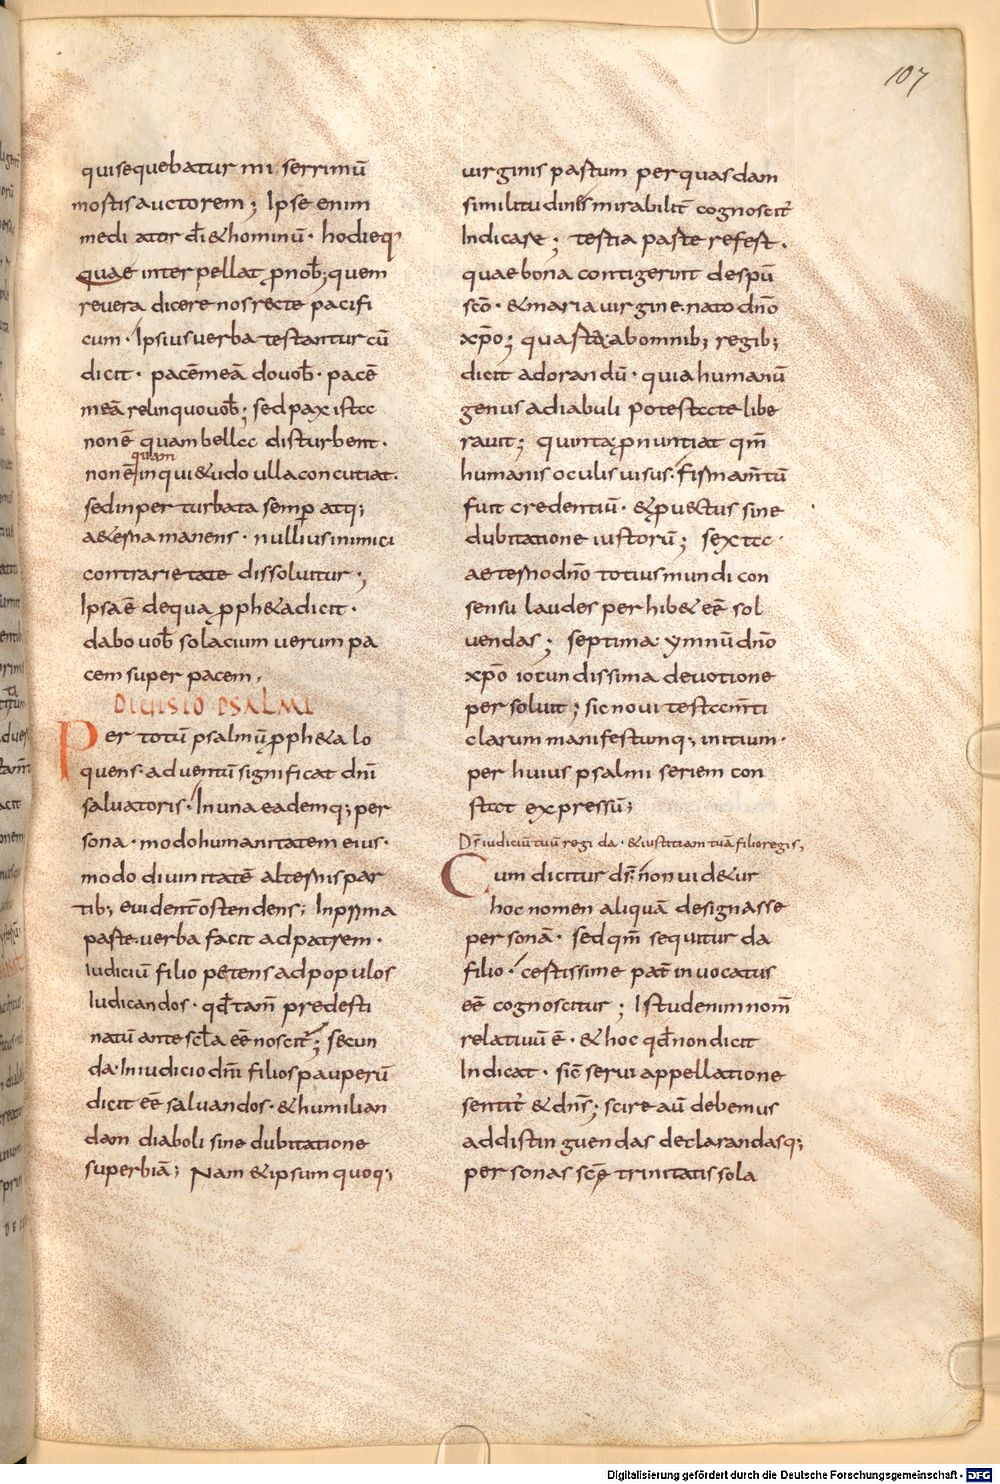 107
quisequebatur miserrimū
mortis auctorem; Ipse enim
mediator dī & hominū· hodieq;
quae interpellat ꝓ nob̄; quem
revera dicere nos recte pacifi
cum· Ipsius verba testantur cū
dicit· pacē meā do vob̄· pacē
meā relinquo vob̄; sed pax ista
non ē quam bella disturbent·
quam
non ē inqui&udo ulla concutiat·
sed inperturbata semper atq;
a&erna manens· nullius inimici
contrarietate dissoluitur;
Ipsa ē de qua ꝓph&a dicit·
dabo vob̄ solacium verum pa
cem super pacem,
DIVISIO PSALMI
Per totū psalmū ꝓph&a lo
quens· adventū significat dn̄i
salvatoris· In una eademq; per
sona· modo humanitatem eius·
modo divinitatē alternis par
tib; evident̄ ostendens; In prima
parte verba facit ad patrem·
iudiciū filio petens ad populos
Iudicandos· qđ tam̄ predesti
natū ante scl̄a eē noscit̄; secun
da· In iudicio dn̄i filios pauperū
dicit eē salvandos· & humilian
dam diaboli sine dubitatione
superbiā; Nam & ipsum quoq;
virginis partum per quasdam
similitudines mirabilit̄ cognoscit̄
Indicare; tertia parte refert·
quae bona contigerint de spū
scō· & maria virgine nato dn̄o
xp̄o; quarta ab omnib; regib;
dicit adorandū· quia humanū
genus a diabuli potestate libe
ravit; quinta ꝓnuntiat qm̄
humanis oculis visus· firmam̄tū
fuit credentiū· & ꝓvectus sine
dubitatione iustorū; sexta·
aeterno dn̄o totius mundi con
sensu laudes perhib& eē sol
vendas; septima ymnū dn̄o
xp̄o iocundissima devotione
persoluit; sic novi testam̄ti
clarum manifestumq; initium·
per huius psalmi seriem con
stat expressū;
Ds̄ iudiciū tuū regi da· & iustitiam tuā filio regis,
Cum dicitur ds̄· non vid&ur
hoc nomen aliquā designasse
personā· sed qm̄ sequitur da
filio· certissime pat̄ invocatus
eē cognoscitur; Istud enim nom̄
relativū ē· & hoc qđ non dicit
Indicat· sic̄ servi appellatione
sentit̄ & dn̄s; scire aū debemus
ad distinguendas declarandasq;
personas scē trinitatis sola
Digitalisierung gefördert durch die Deutsche Forschungsgemeinschaft - DFG